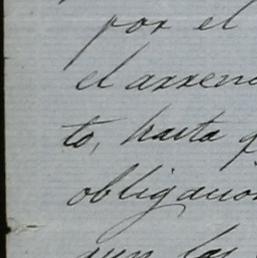 por el
el arren
to, hasta q
obligacio